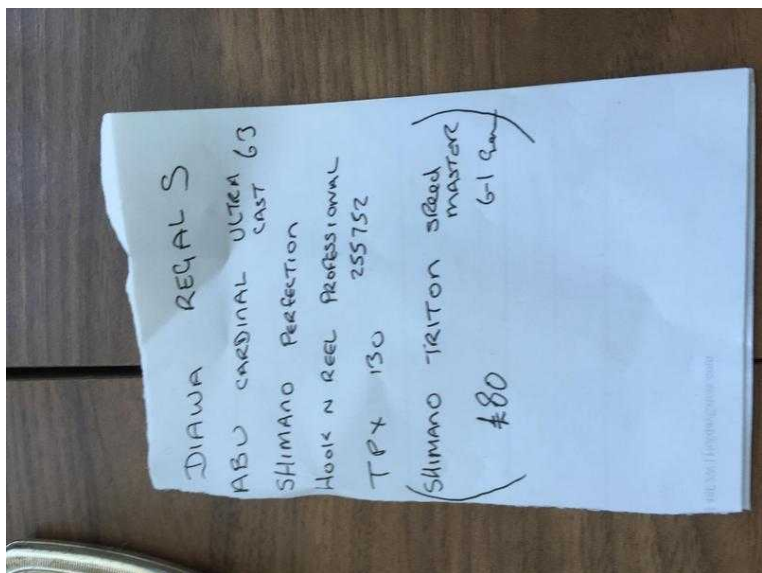 DIAWA REGAL S
ABU CARDINAL ULTRA 63
CAST
SHIMANO PERFECTION
HOOK N REEL PROFESSIONAL
TPX 130 255752
(SHIMANO TRITON SPEED
MASTOR
£80 6-1